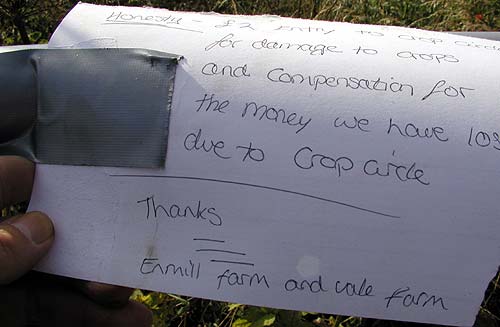 Honesty - £2 Entry to crop circle
for damage to crops
and compensation for
the money we have los
due to Crop circle
Thanks
Enmill farm and vale farm